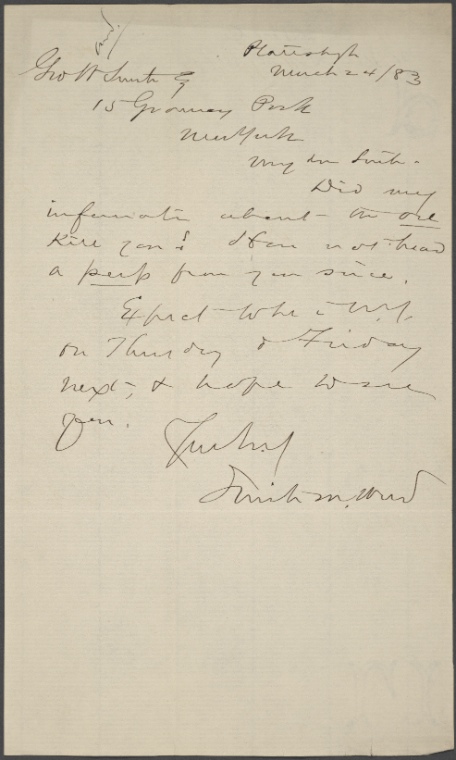 Plattsbgh
March 24/83
Geo W Smith Esq
15 Gramercy Park
New York
My dear Smith.
Did my
information about the ore
kill you? I have not heard
a peep from you since.
Expect to be in N.Y.
on Thursday & Friday
next, & hope to see
you.
Truly
Smith M. Weed